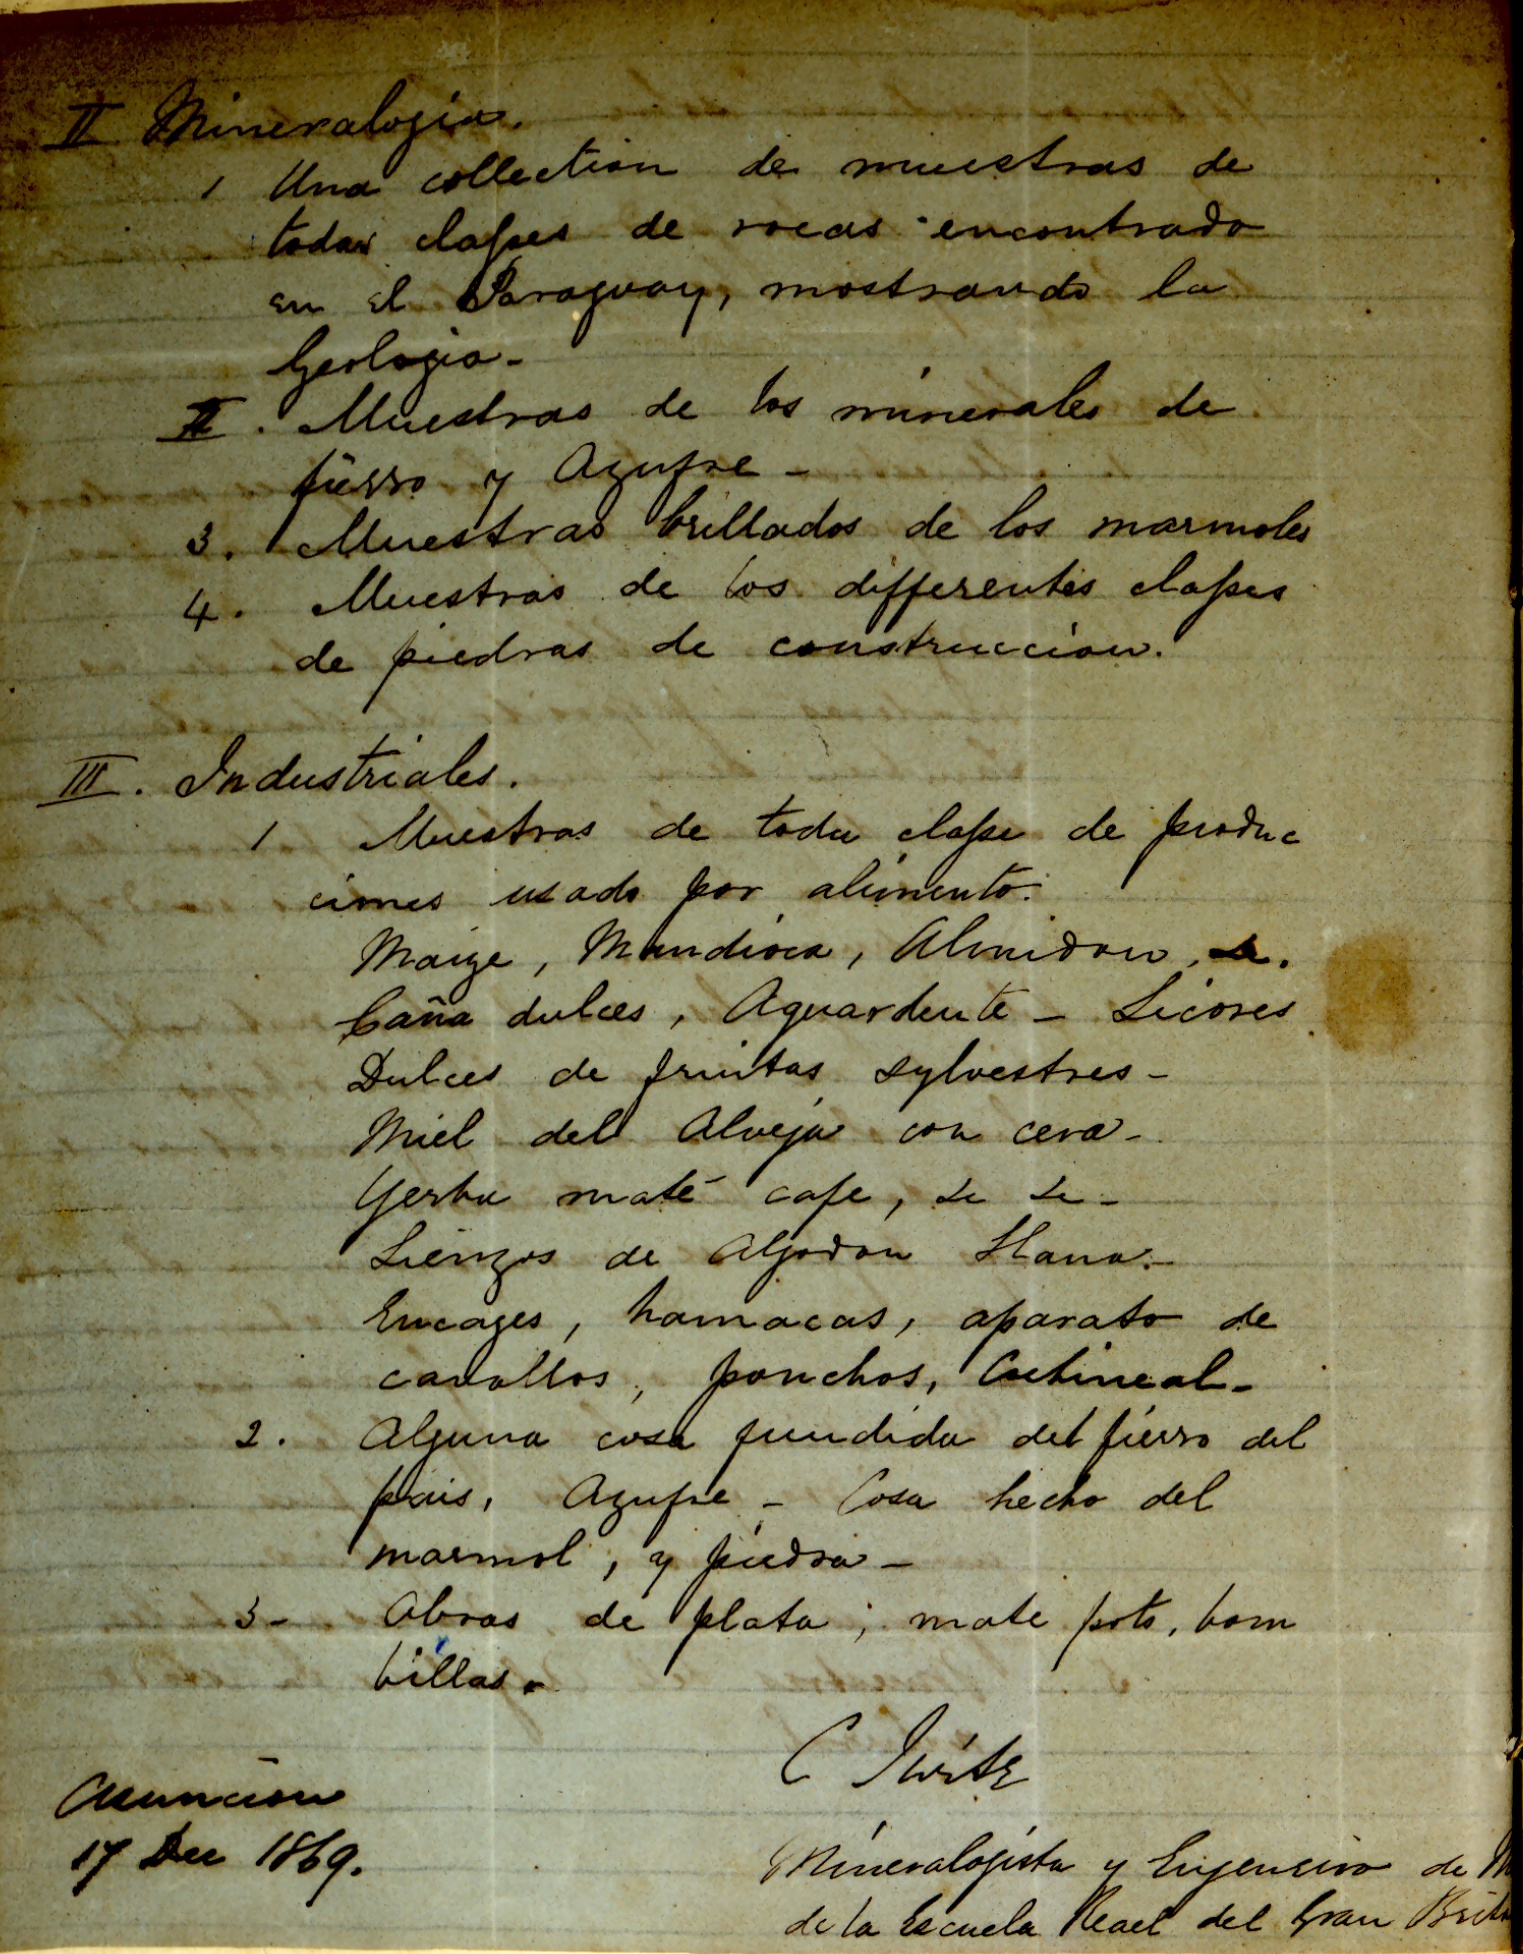 II Mineralogia.
1 Una collection de muestras de
todas classes de rocas encontrado
en el Paraguay, mostrando la
Geologia -
II. Muestras de los minerales de
fierro y Azufre -
3. Muestras brillados de los marmoles
4. Muestras de los differentes classes
de piedras de construccion.
III. Industriales.
1 Muestras de toda classe de produc
ciones usado por alimento.
Maize, Mandioca, Almidon, &.
Caña dulces, Aguardente - Licores
Dulces de fruitas sylvestres -
Miel del Alveja con cera -
Yerba maté cafe, &c &c -
Lienzos de Algodon Llana -
Encages, hamacas, aparato de
cavallos, ponchos, Cochineal -
2. Alguna cosa fundida del fierro del
pais, Azufre - Cosa hecho del
marmol, y piedra -
3 - Obras de plata; mate pots, bom
billas.
C
Asuncion
17 Dec 1869.
Mineralogista y Engeneiro de M
de la Escuela Reael del Gran Brita